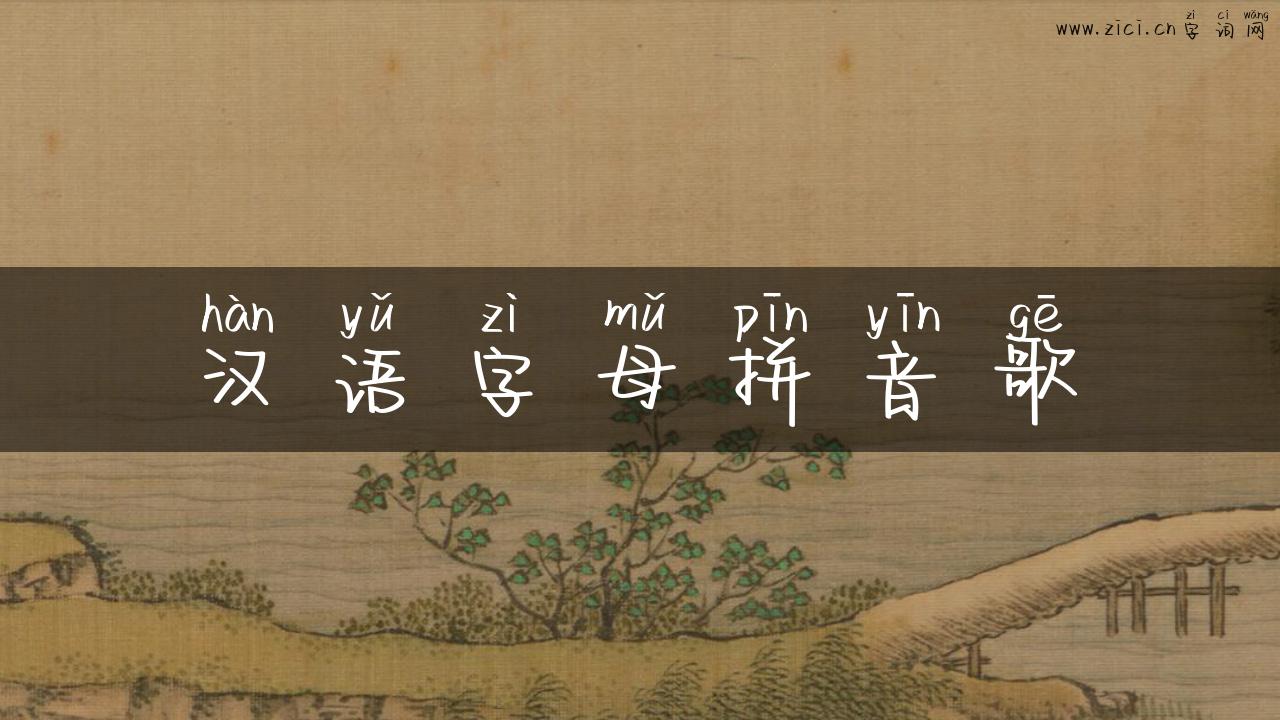 zì cí wǎng
www.zici.cn 字 词 网
hàn yǔ zì mǔ pīn yīn gē
汉 语 字 母 拼 音 歌